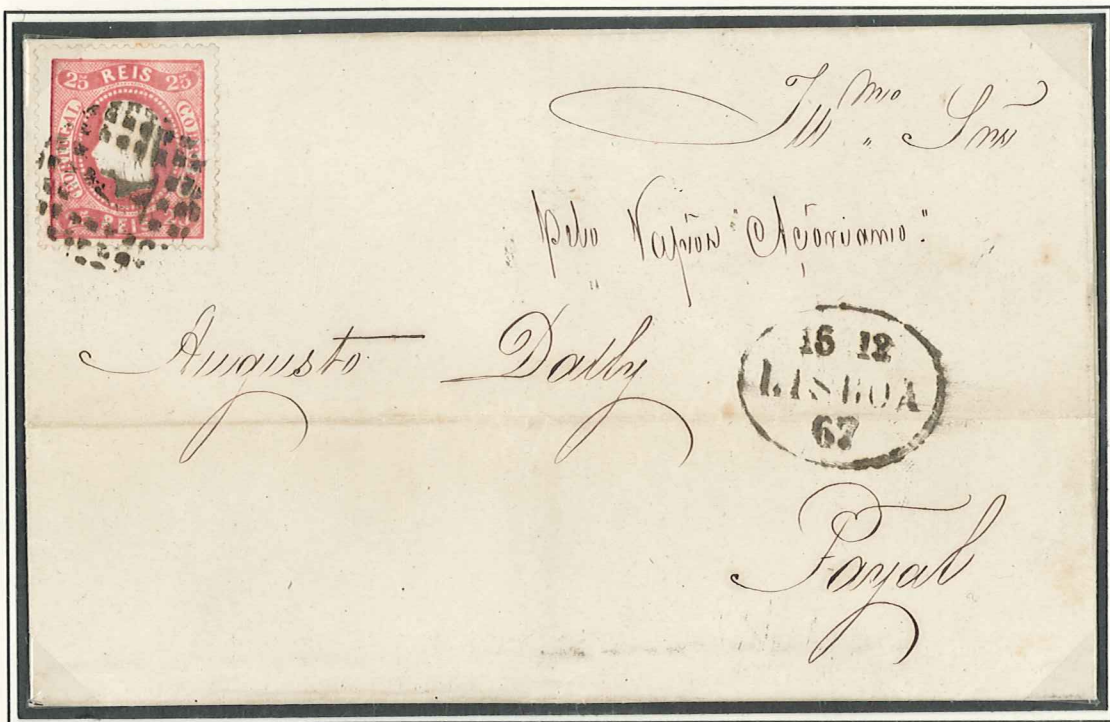 25 REIS 25
PORTUGAL
CORREIO
REIS
Illmo Snr
pelo Vapor "Açoriano"
Augusto Dabby
15 12
LISBOA
67
Fayal